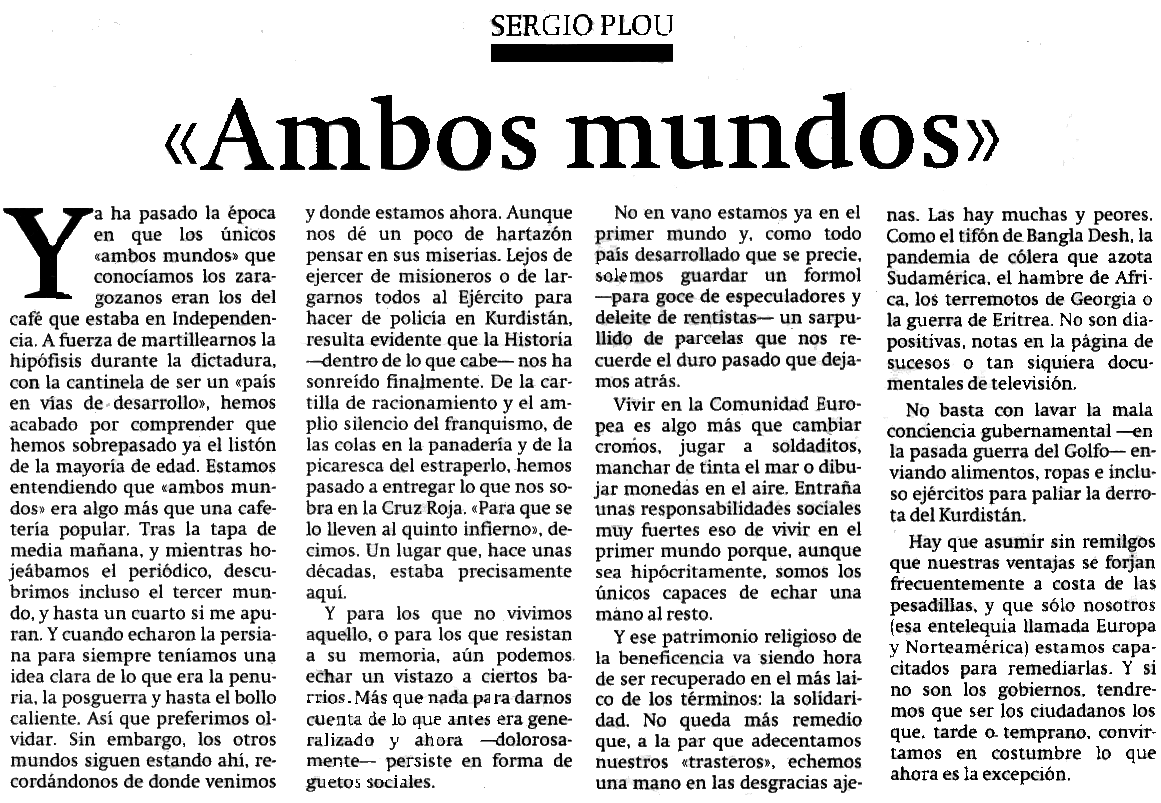 SERGIO PLOU
«Ambos mundos»
Ya ha pasado la época
en que los únicos
«ambos mundos» que
conocíamos los zara-
gozanos eran los del
café que estaba en Independen-
cia. A fuerza de martillearnos la
hipófisis durante la dictadura,
con la cantinela de ser un «país
en vías de desarrollo», hemos
acabado por comprender que
hemos sobrepasado ya el listón
de la mayoría de edad. Estamos
entendiendo que «ambos mun-
dos» era algo más que una cafe-
tería popular. Tras la tapa de
media mañana, y mientras ho-
jeábamos el periódico, descu-
brimos incluso el tercer mun-
do, y hasta un cuarto si me apu-
ran. Y cuando echaron la persia-
na para siempre teníamos una
idea clara de lo que era la penu-
ria, la posguerra y hasta el bollo
caliente. Así que preferimos ol-
vidar. Sin embargo, los otros
mundos siguen estando ahí, re-
cordándonos de donde venimos
y donde estamos ahora. Aunque
nos dé un poco de hartazón
pensar en sus miserias. Lejos de
ejercer de misioneros o de lar-
garnos todos al Ejército para
hacer de policía en Kurdistán,
resulta evidente que la Historia
—dentro de lo que cabe— nos ha
sonreído finalmente. De la car-
tilla de racionamiento y el am-
plio silencio del franquismo, de
las colas en la panadería y de la
picaresca del estraperlo, hemos
pasado a entregar lo que nos so-
bra en la Cruz Roja. «Para que se
lo lleven al quinto infierno», de-
cimos. Un lugar que, hace unas
décadas, estaba precisamente
aquí.
Y para los que no vivimos
aquello, o para los que resistan
a su memoria, aún podemos
echar un vistazo a ciertos ba-
rrios. Más que nada para darnos
cuenta de lo que antes era gene-
ralizado y ahora —dolorosa-
mente— persiste en forma de
guetos sociales.
No en vano estamos ya en el
primer mundo y, como todo
país desarrollado que se precie,
solemos guardar un formol
—para goce de especuladores y
deleite de rentistas— un sarpu-
llido de parcelas que nos re-
cuerde el duro pasado que deja-
mos atrás.
Vivir en la Comunidad Euro-
pea es algo más que cambiar
cromos, jugar a soldaditos,
manchar de tinta el mar o dibu-
jar monedas en el aire. Entraña
unas responsabilidades sociales
muy fuertes eso de vivir en el
primer mundo porque, aunque
sea hipócritamente, somos los
únicos capaces de echar una
mano al resto.
Y ese patrimonio religioso de
la beneficencia va siendo hora
de ser recuperado en el más lai-
co de los términos: la solidari-
dad. No queda más remedio
que, a la par que adecentamos
nuestros «trasteros», echemos
una mano en las desgracias aje-
nas. Las hay muchas y peores.
Como el tifón de Bangla Desh, la
pandemia de cólera que azota
Sudamérica, el hambre de Afri-
ca, los terremotos de Georgia o
la guerra de Eritrea. No son dia-
positivas, notas en la página de
sucesos o tan siquiera docu-
mentales de televisión.
No basta con lavar la mala
conciencia gubernamental —en
la pasada guerra del Golfo— en-
viando alimentos, ropas e inclu-
so ejércitos para paliar la derro-
ta del Kurdistán.
Hay que asumir sin remilgos
que nuestras ventajas se forjan
frecuentemente a costa de las
pesadillas, y que sólo nosotros
(esa entelequia llamada Europa
y Norteamérica) estamos capa-
citados para remediarlas. Y si
no son los gobiernos, tendre-
mos que ser los ciudadanos los
que, tarde o temprano, convir-
tamos en costumbre lo que
ahora es la excepción.